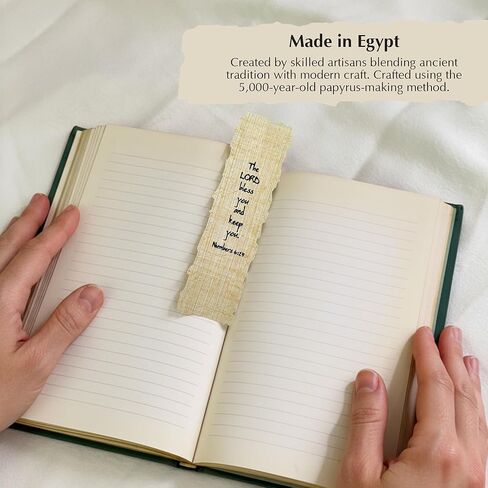 Made in Egypt
Created by skilled artisans blending ancient
tradition with modern craft. Crafted using the
5,000-year-old papyrus-making method.
The
LORD
bless
you
and
keep
you.
Numbers 6:24